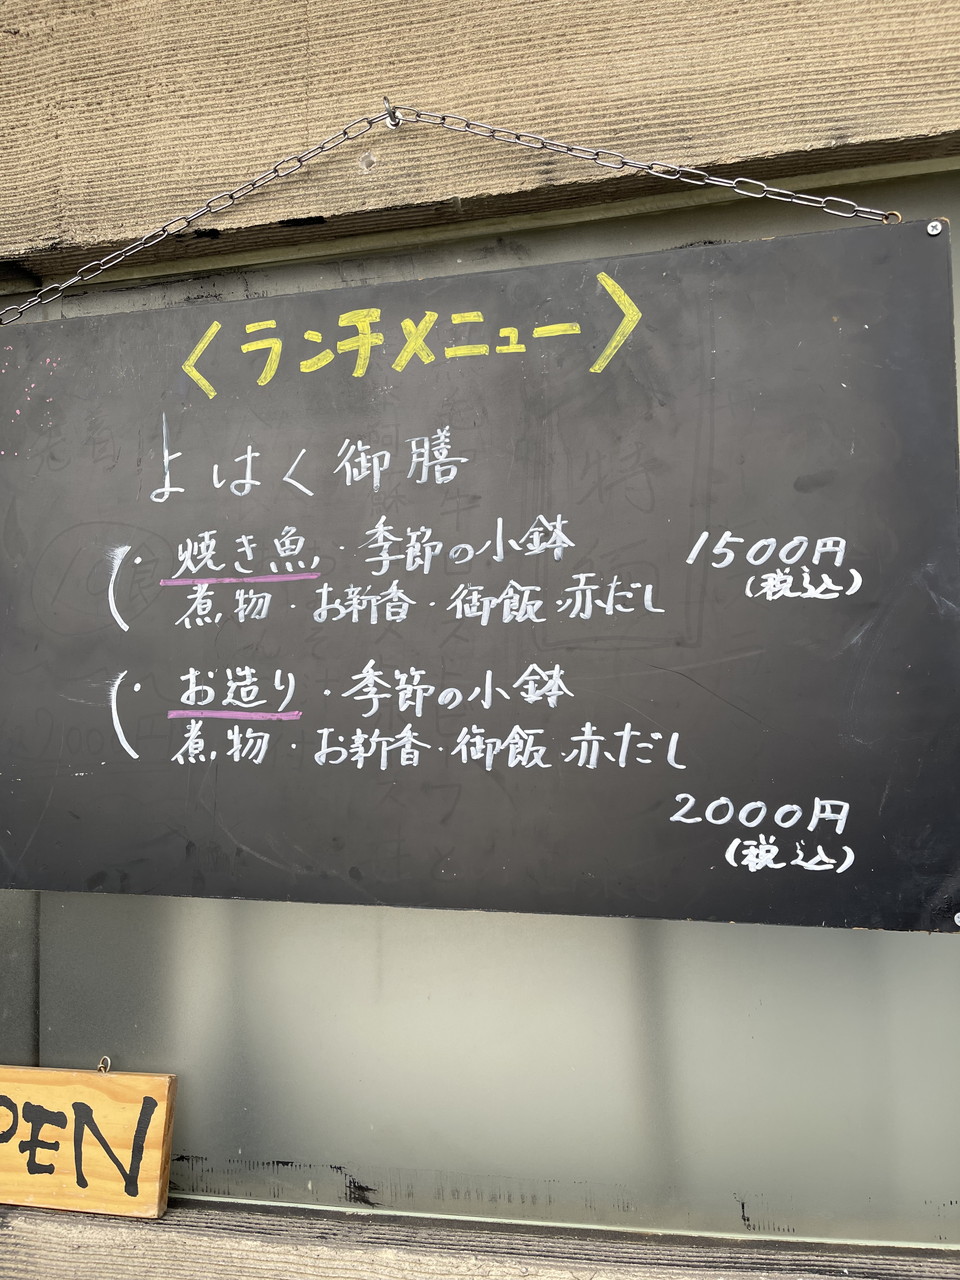 〈ランチメニュー〉
よはく御膳
・焼き魚・季節の小鉢 1500円
煮物・お新香・御飯・赤だし (税込)
・お造り・季節の小鉢
煮物・お新香・御飯・赤だし
2000円
(税込)
PEN